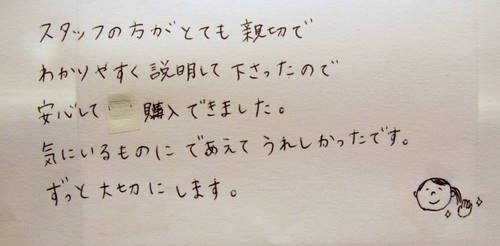 スタッフの方がとても親切で
わかりやすく説明して下さったので
安心して 購入できました。
気にいるものにであえてうれしかったです。
ずっと大切にします。